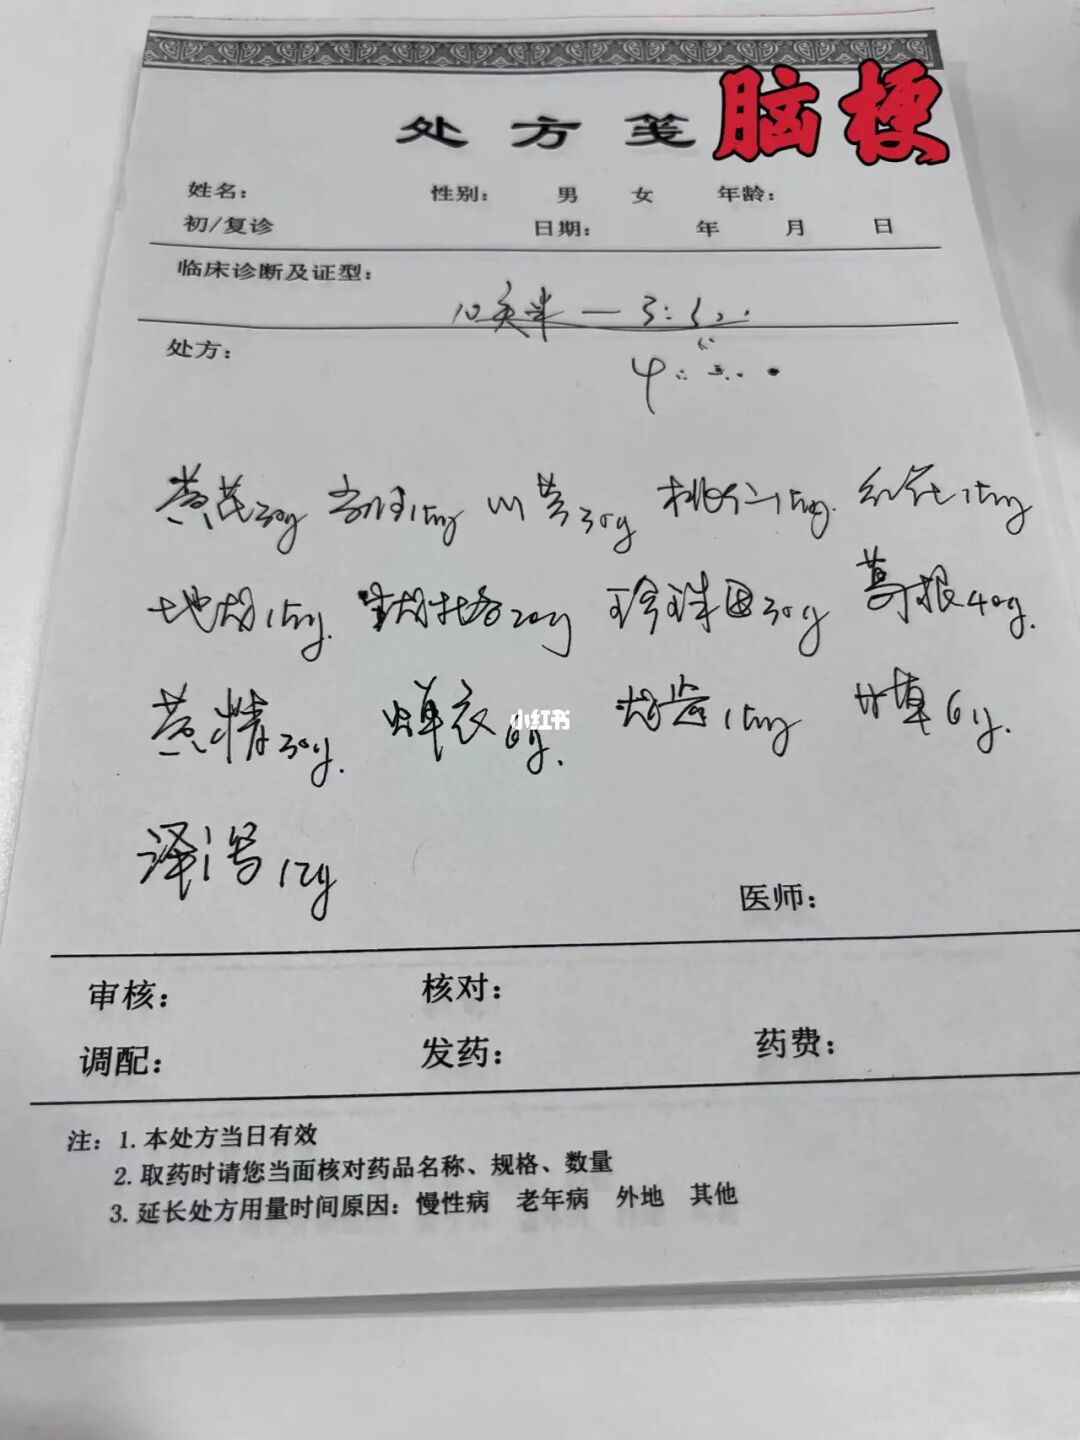 处方笺 脑梗
姓名： 性别： 男 女 年龄：
初/复诊 日期： 年 月 日
临床诊断及证型：
处方：
黄芪30g 当归15g 川芎30g 桃仁15g. 红花15g
地龙15g. 20g 珍珠母30g 葛根40g.
黄精30g. 蝉衣6g. 龙齿15g 甘草6g.
小红书
泽泻12g
医师：
审核： 核对：
调配： 发药： 药费：
注：1. 本处方当日有效
2. 取药时请您当面核对药品名称、规格、数量
3. 延长处方用量时间原因：慢性病 老年病 外地 其他